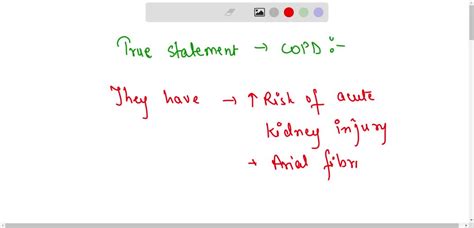 True statement → COPD :-
They have → ↑ Risk of acute
kidney injury
→ Arial fibr